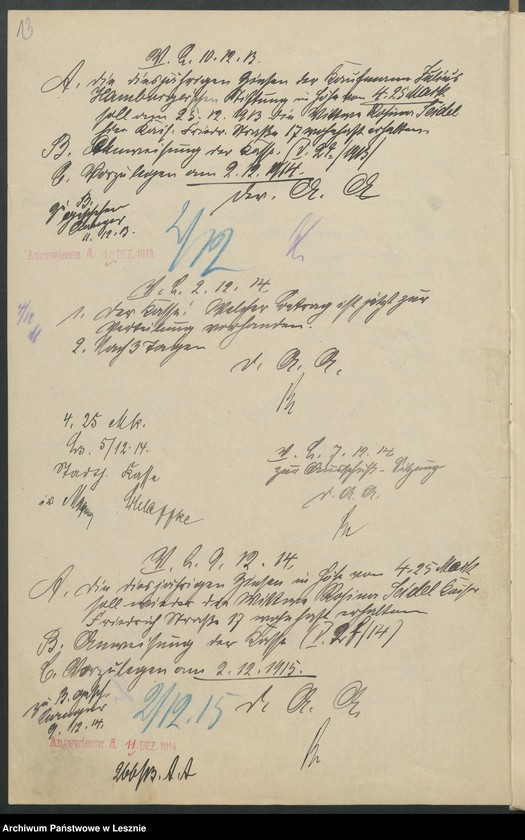 13
V. L. 10.12.13.
A. die diesjährigen Zinsen der Kaufmann Julius
Hamburgerschen Stiftung in Höhe von 4.25 Mark
soll am 25.12.1913 die Wittwe Rosina Seidel
hier Kais. Friedr. Straße 17 wohnhaft erhalten.
B. Anweisung der Kasse.
C. Vorzulegen am 2.12.1914.
Der. A. A
zu B.
geschehen
11.12.13.
Angewiesen d. 12 DEZ. 1913
2/12
V. L. 2.12.14.
4/12
1. der Kasse: Welcher Betrag ist jetzt zur
Verteilung vorhanden.
2. Nach 3 Tagen
D. A. A.
4.25 Mk.
Ls. 5/12.14.
Stadth. Kasse
V. L. 7.12.14.
zur Ausschuß-Sitzung
D. A. A.
V. L. 9.12.14.
A. die diesjährigen Zinsen in Höhe von 4.25 Mark
soll wieder die Wittwe Rosina Seidel Kaiser
Friedrich Straße 17 wohnhaft erhalten
B. Anweisung der Kasse
C. Vorzulegen am 2.12.1915.
D. A. A.
zu B. gesch.
9.12.14.
2/12.15
Angewiesen d. 11 DEZ. 1914
266/B. A. A
Archiwum Państwowe w Lesznie